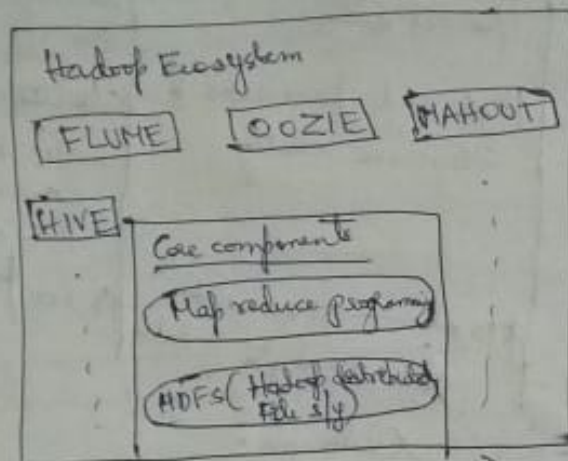 Hadoop Ecosystem
FLUME OOZIE MAHOUT
HIVE
Core components
Map reduce programming
HDFS (Hadoop distributed
File s/y)